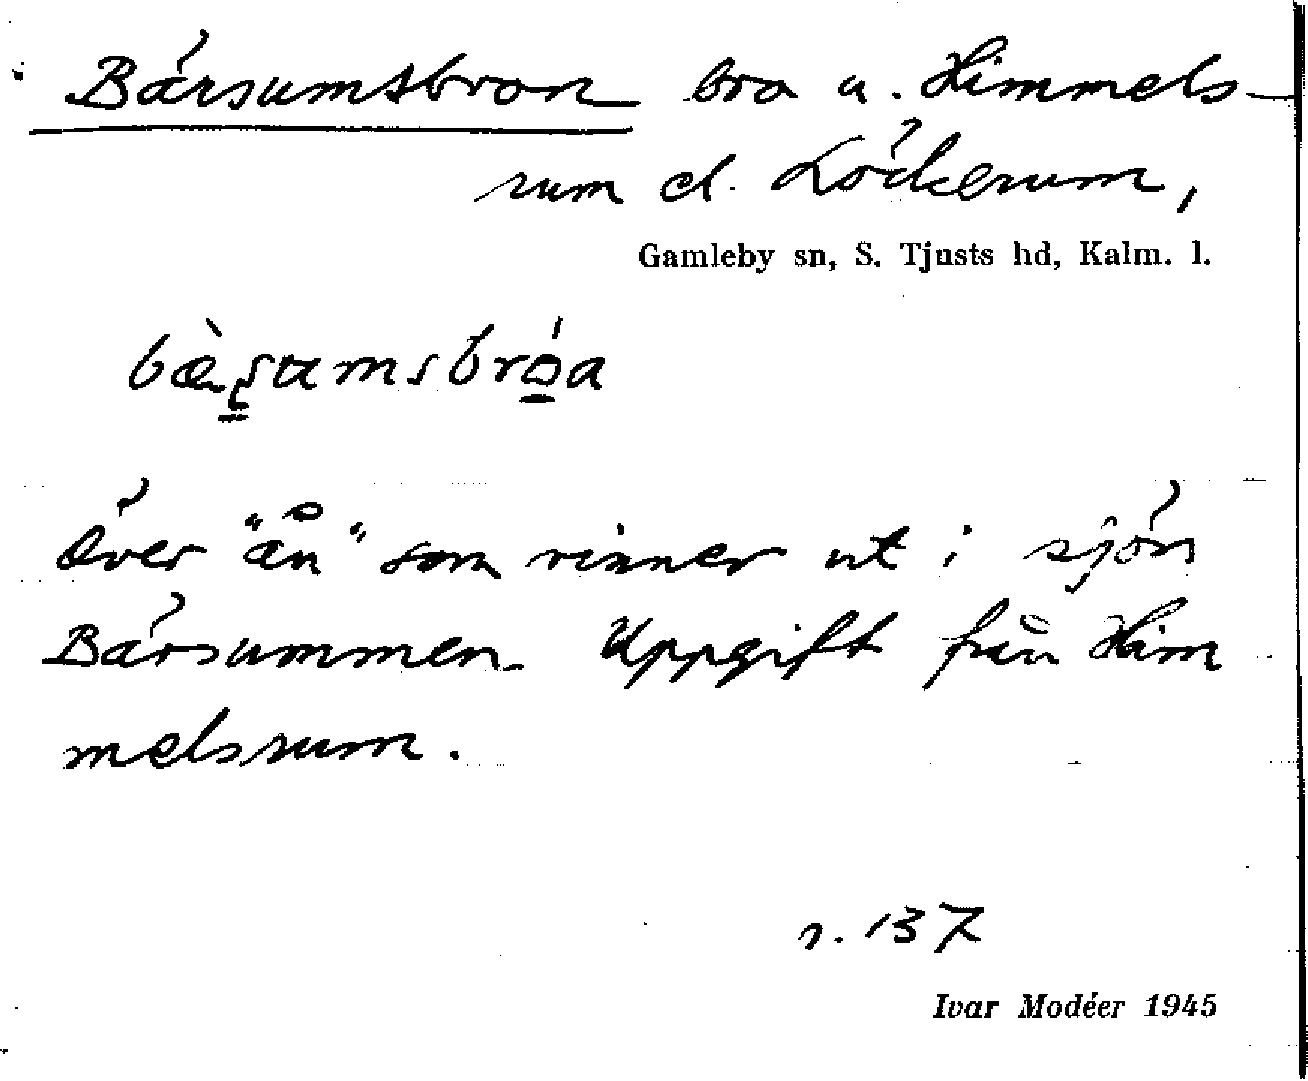 Bärsumsbron bro u. Himmels-
rum el. Löckerum,
Gamleby sn, S. Tjusts hd, Kalm. l.
över "ån" som rinner ut i sjön
Bärsummen. Uppgift från Him
melsrum.
s. 137
Ivar Modéer 1945